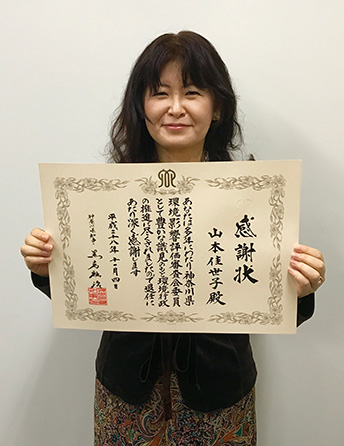 感謝状
山本佳世子殿
あなたは多年にわたり神奈川県
環境影響評価審査会委員
として豊かな識見をもって環境行政
の推進に尽くされましたので退任に
あたり深く感謝します
平成二八年十一月四日
神奈川県知事